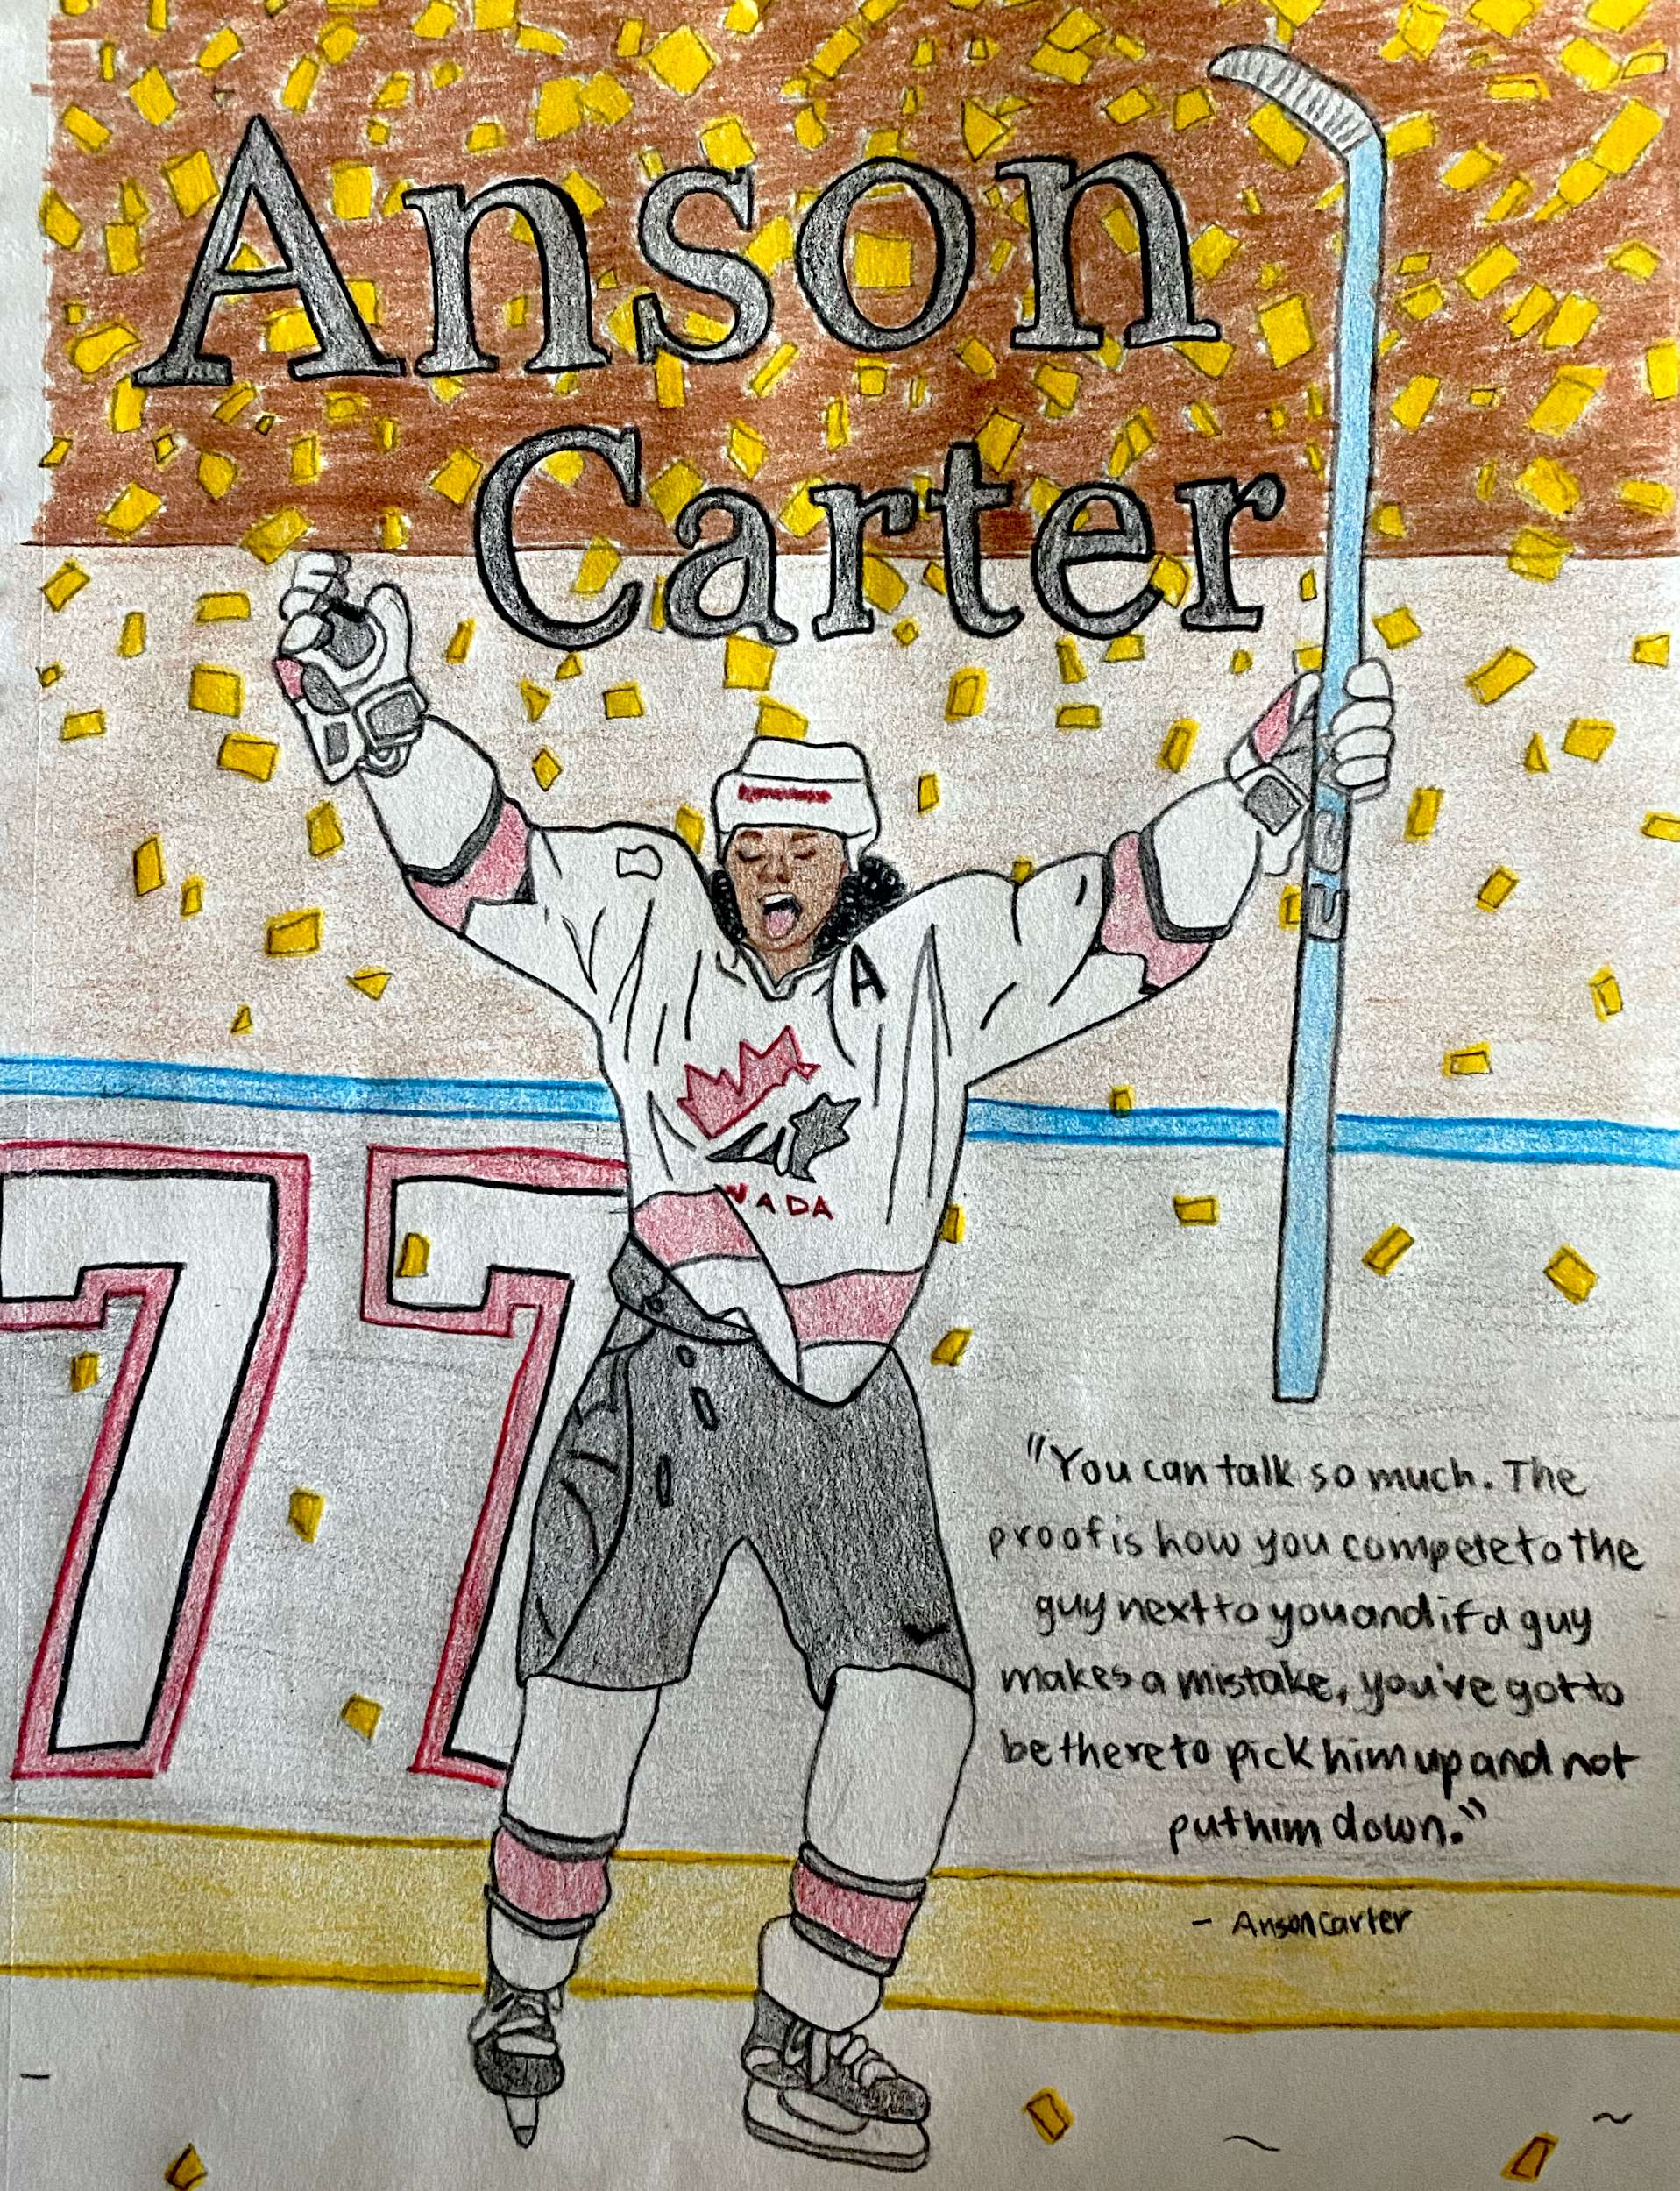 Anson
Carter
A
NADA
77
"You can talk so much. The
proof is how you compete to the
guy next to you and if a guy
makes a mistake, you've got to
be there to pick him up and not
put him down."
- Anson Carter